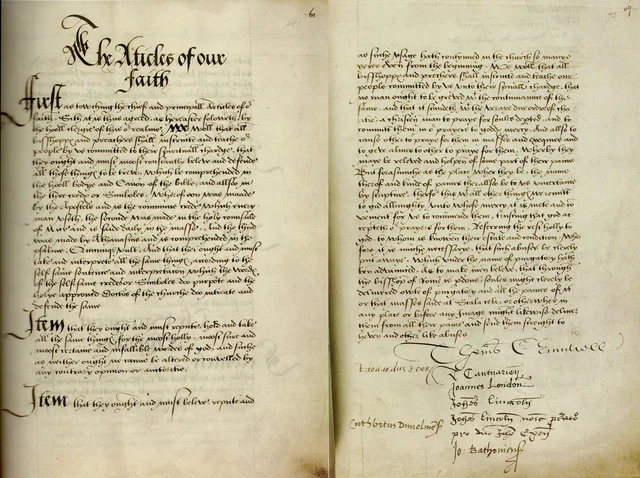 6
The Articles of our
faith
First as towching the chief and principall articles of or
faith, Sith it is thus agreed, as hereafter foloweth, by
the hooll clergie of this or realme, We woll that all
bisshoppes and preachers shall instructe and teache or
people by vs committed to their spirituall charge, that
they ought and must most constantly beleve and defende
all those things to be trewe, Which be comprehended in
the hooll bodye and Canon of the bible, and allso in
the three credes or Simboles, Whereof oon was made
by the apostles and is the commune crede which every
man vseth, the seconde was made in the holy counsaile
of Nice and is saide daily in the masse, And the third
was made by Athanasius and is comprehended in the
psalme Quicunq vult, And that they ought and must
take and interprete all the same things, according to the
self same sentence and interpretation Which the words
of the self same credes or Simboles doo purporte and the
holye approved doctors of the churche doo intreate and
defende the same
Item that they ought and must repute, hold and take
all the same things, for the moost holly, moost sure and
moost certane and infallible words of god, and suche
as neither ought ne canne be altered or convelled by
any contrary opinion or auctoritie,
Item that they ought and must beleve, repute and
as suche vsage hath contynued in the church so manye
yeres even from the begynnyng, We woll that all
bisshoppes and preachers shall instructe and teache our
people committed by vs vnto their spirituall charge, that
no man ought to be greved wt the contynuance of the
same, and that it standeth wt the veraye due ordre of cha-
ritie a christen man to praye for soules departed, and to
committ them in or prayers to godds mercy, And allso to
cause other to praye for them in masses and exequies and
to geve almes to other to praye for them, Wherby they
maye be relieved and holpen of some part of their payne
But forasmuche as the place where they be, the name
therof and kinde of paines there allso be to vs vncertane
by scripture, therfor this wt all other things we remitt
to god allmighty, vnto whose mercy it is mete and co-
venient for vs to commende them, trusting that god ac-
cepteth or prayers for them, Referring the rest holly to
god to whom is knowen their estate and condition, Wher-
fore it is moche necessarie, that suche abuses be clerely
put awaye, Which vnder the name of purgatory hath
ben advanced, as to make men beleve, that through
the bisshop of Romes pardons soules might clerely be
delivered owte of purgatory and all the paines of it
or that masses saide at Scala celi, or otherwhere in
any place or before any Image might likewise deliver
them from all their paine and send them streight to
heven and other like abuses
Thomas Crumwell
T. Cantuarien
Edouardus Ebor
Joannes London
Cuthbertus Dunolmen
Johes Lincoln
Johes Lincoln noie procuratorio
pro dno Johe Exon
Jo. Bathonien